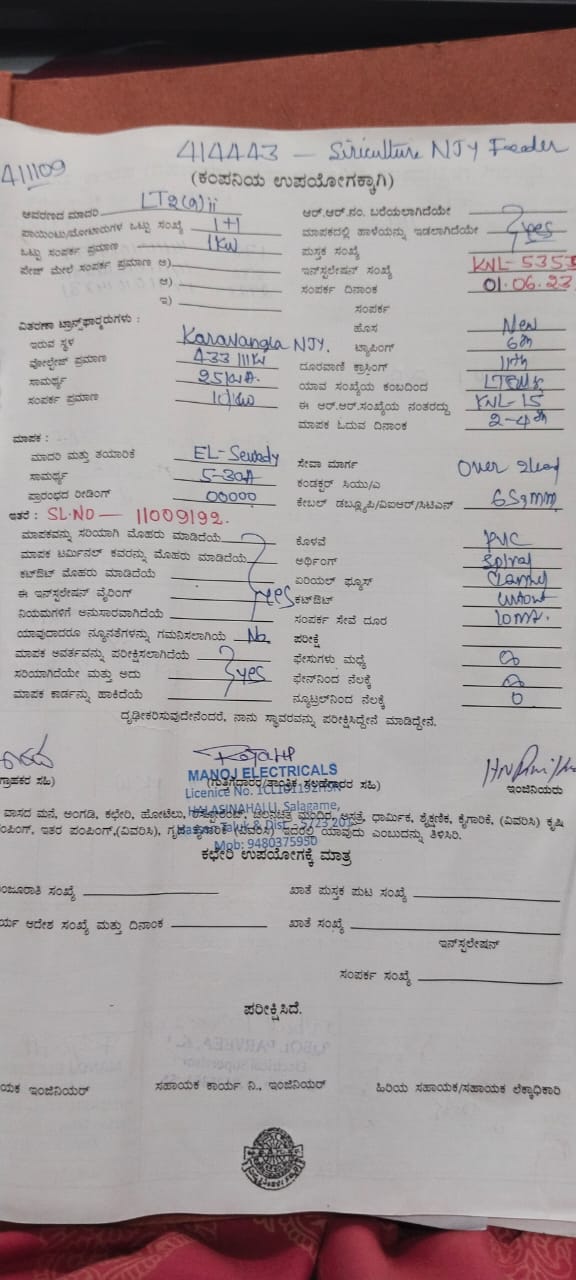 411109
414443 - Siriculture NJY Feeder
(ಕಂಪನಿಯ ಉಪಯೋಗಕ್ಕಾಗಿ)
ಆವರಣದ ಮಾದರಿ LT2(a)ii
ಆರ್.ಆರ್.ನಂ. ಬರೆಯಲಾಗಿದೆಯೇ
ಪಾಯಿಂಟು/ಮೋಟಾರುಗಳ ಒಟ್ಟು ಸಂಖ್ಯೆ 1+1
ಮಾಪಕದಲ್ಲಿ ಹಾಳೆಯನ್ನು ಇಡಲಾಗಿದೆಯೇ yes
ಒಟ್ಟು ಸಂಪರ್ಕ ಪ್ರಮಾಣ 1KW
ಪುಸ್ತಕ ಸಂಖ್ಯೆ
ಪೇಜ್ ಮೇಲೆ ಸಂಪರ್ಕ ಪ್ರಮಾಣ ಅ)
ಇನ್‌ಸ್ಟಲೇಷನ್ ಸಂಖ್ಯೆ KNL-5353
ಆ)
ಸಂಪರ್ಕ ದಿನಾಂಕ 01.06.23
ಇ)
ಸಂಪರ್ಕ
ವಿತರಣಾ ಟ್ರಾನ್ಸ್‌ಫಾರ್‍ಮರುಗಳು :
ಹೊಸ New
ಇರುವ ಸ್ಥಳ Karavangla NJY.
ಟ್ಯಾಪಿಂಗ್ 6th
ವೋಲ್ಟೇಜ್ ಪ್ರಮಾಣ
ದೂರವಾಣಿ ಕ್ರಾಸಿಂಗ್
ಸಾಮರ್ಥ್ಯ
ಯಾವ ಸಂಖ್ಯೆಯ ಕಂಬದಿಂದ
ಸಂಪರ್ಕ ಪ್ರಮಾಣ
ಈ ಆರ್.ಆರ್.ಸಂಖ್ಯೆಯ ನಂತರದ್ದು KNL-15
ಮಾಪಕ ಓದುವ ದಿನಾಂಕ 2-4th
ಮಾಪಕ :
ಮಾದರಿ ಮತ್ತು ತಯಾರಿಕೆ
ಸೇವಾ ಮಾರ್ಗ Over
ಸಾಮರ್ಥ್ಯ 5-30A
ಕಂಡಕ್ಟರ್ ಸಿಯು/ಎ
ಪ್ರಾರಂಭದ ರೀಡಿಂಗ್ 00000
ಕೇಬಲ್ ಡಬ್ಲ್ಯೂಪಿ/ವಿಐಆರ್/ಸಿಟಿಎಸ್ 6Sqmm
ಇತರೆ : SL.NO - 11009192.
ಮಾಪಕವನ್ನು ಸರಿಯಾಗಿ ಮೊಹರು ಮಾಡಿದೆಯೆ
ಕೊಳವೆ PVC
ಮಾಪಕ ಟರ್ಮಿನಲ್ ಕವರನ್ನು ಮೊಹರು ಮಾಡಿದೆಯೆ
ಅರ್ಥಿಂಗ್ Spiral
ಕಟ್‌ಔಟ್ ಮೊಹರು ಮಾಡಿದೆಯೆ
ಏರಿಯಲ್ ಫ್ಯೂಸ್
ಈ ಇನ್‌ಸ್ಟಲೇಷನ್ ವೈರಿಂಗ್ yes
ಕಟ್‌ಔಟ್ Cutout
ನಿಯಮಗಳಿಗೆ ಅನುಸಾರವಾಗಿದೆಯೆ
ಸಂಪರ್ಕ ಸೇವೆ ದೂರ 10mt.
ಯಾವುದಾದರೂ ನ್ಯೂನತೆಗಳನ್ನು ಗಮನಿಸಲಾಗಿಯೆ No
ಪರೀಕ್ಷೆ
ಮಾಪಕ ಆವರ್ತವನ್ನು ಪರೀಕ್ಷಿಸಲಾಗಿದೆಯೆ
ಫೇಸುಗಳು ಮಧ್ಯೆ
ಸರಿಯಾಗಿದೆಯೇ ಮತ್ತು ಅದು yes
ಫೇಸ್‌ನಿಂದ ನೆಲಕ್ಕೆ
ಮಾಪಕ ಕಾರ್ಡನ್ನು ಹಾಕಿದೆಯೆ
ನ್ಯೂಟ್ರಲ್‌ನಿಂದ ನೆಲಕ್ಕೆ 0
ದೃಢೀಕರಿಸುವುದೇನೆಂದರೆ, ನಾನು ಸ್ಥಾವರವನ್ನು ಪರೀಕ್ಷಿಸಿದ್ದೇನೆ ಮಾಡಿದ್ದೇನೆ.
ಗ್ರಾಹಕರ ಸಹಿ)
ಇಂಜಿನಿಯರು
MANOJ ELECTRICALS
HALASINAHALLI, Salagame,
Mob: 9480375950
ವಾಸದ ಮನೆ, ಅಂಗಡಿ, ಕಛೇರಿ, ಹೋಟೆಲು, ರೆಸ್ಟೋರೆಂಟ್, ಚಲನಚಿತ್ರ ಮಂದಿರ, ಆಸ್ಪತ್ರೆ, ಧಾರ್ಮಿಕ, ಶೈಕ್ಷಣಿಕ, ಕೈಗಾರಿಕೆ, (ವಿವರಿಸಿ) ಕೃಷಿ
ಪಂಪಿಂಗ್, ಇತರ ಪಂಪಿಂಗ್,(ವಿವರಿಸಿ), ಗೃಹ ಕೈಗಾರಿಕೆ (ವಿವರಿಸಿ) ಇದರಲ್ಲಿ ಯಾವುದು ಎಂಬುದನ್ನು ತಿಳಿಸಿರಿ.
ಕಛೇರಿ ಉಪಯೋಗಕ್ಕೆ ಮಾತ್ರ
ಮಂಜೂರಾತಿ ಸಂಖ್ಯೆ
ಖಾತೆ ಪುಸ್ತಕ ಪುಟ ಸಂಖ್ಯೆ
ಆದೇಶ ಸಂಖ್ಯೆ ಮತ್ತು ದಿನಾಂಕ
ಖಾತೆ ಸಂಖ್ಯೆ
ಇನ್‌ಸ್ಟಲೇಷನ್
ಸಂಪರ್ಕ ಸಂಖ್ಯೆ
ಪರೀಕ್ಷಿಸಿದೆ.
ಯಕ ಇಂಜಿನಿಯರ್
ಸಹಾಯಕ ಕಾರ್ಯ ನಿ., ಇಂಜಿನಿಯರ್
ಹಿರಿಯ ಸಹಾಯಕ/ಸಹಾಯಕ ಲೆಕ್ಕಾಧಿಕಾರಿ